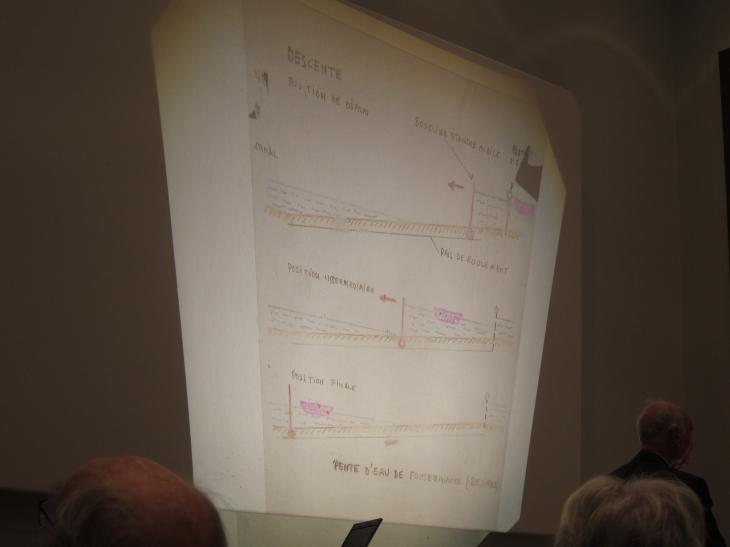 DESCENTE
POSITION DE DÉPART
BOUCLIER ETANCHE MOBILE
CANAL
RAIL DE ROULEMENT
POSITION INTERMEDIAIRE
POSITION FINALE
PENTE D'EAU DE FONSERANNES (BEZIERS)